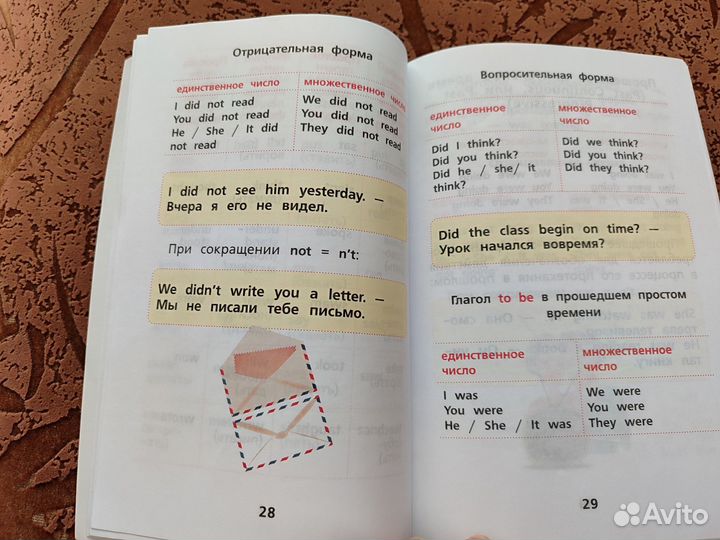 Отрицательная форма
единственное число
множественное число
I did not read
You did not read
He / She / It did
not read
We did not read
You did not read
They did not read
I did not see him yesterday. —
Вчера я его не видел.
При сокращении not = n't:
We didn't write you a letter. —
Мы не писали тебе письмо.
28
Вопросительная форма
единственное
число
множественное
число
Did I think?
Did you think?
Did he / she/ it
think?
Did we think?
Did you think?
Did they think?
Did the class begin on time? —
Урок начался вовремя?
Глагол to be в прошедшем простом
времени
единственное
число
множественное
число
I was
You were
He / She / It was
We were
You were
They were
29
Avito